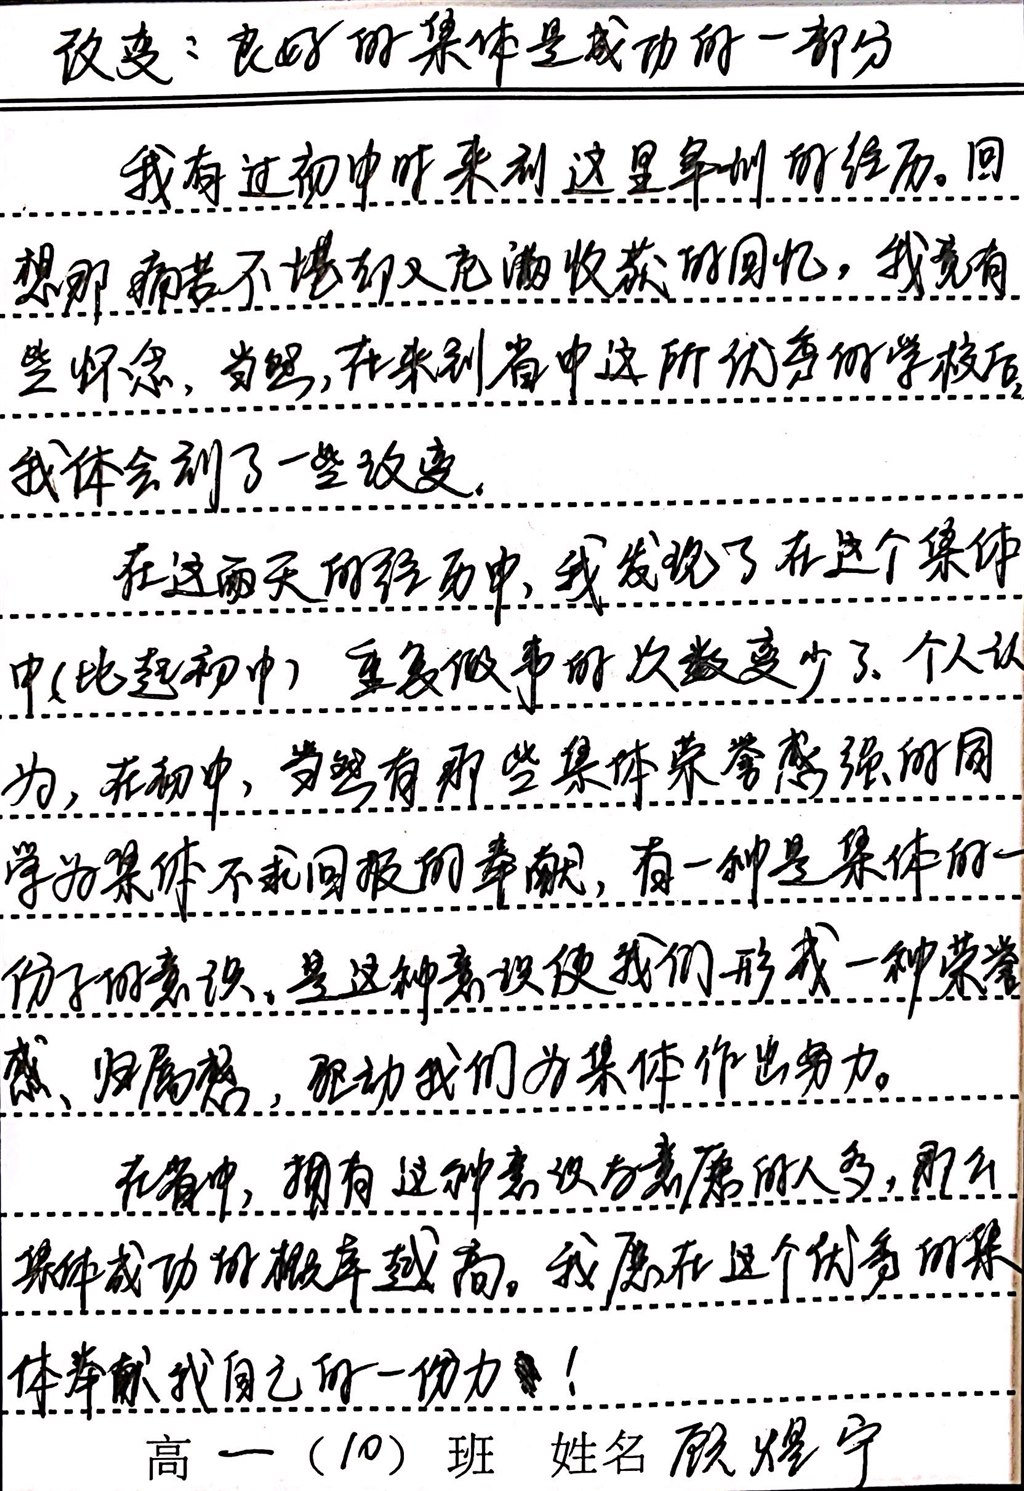 改变：良好的集体是成功的一部分
我有过初中时来到这里军训的经历。回
想那痛苦不堪却又充满收获的回忆，我竟有
些怀念，当然，在来到省中这所优秀的学校后，
我体会到了一些改变。
在这两天的经历中，我发现了在这个集体
中（比起初中）重复做事的次数变少了、个人认
为，在初中，当然有那些集体荣誉感强的同
学为集体不求回报的奉献，有一种是集体的一
份子的意识。是这种意识使我们形成一种荣誉
感、归属感，驱动我们为集体作出努力。
在省中，拥有这种意识与意愿的人多，那么
集体成功的概率越高。我愿在这个优秀的集
体奉献我自己的一份力！
高一（10）班 姓名 顾煜宁